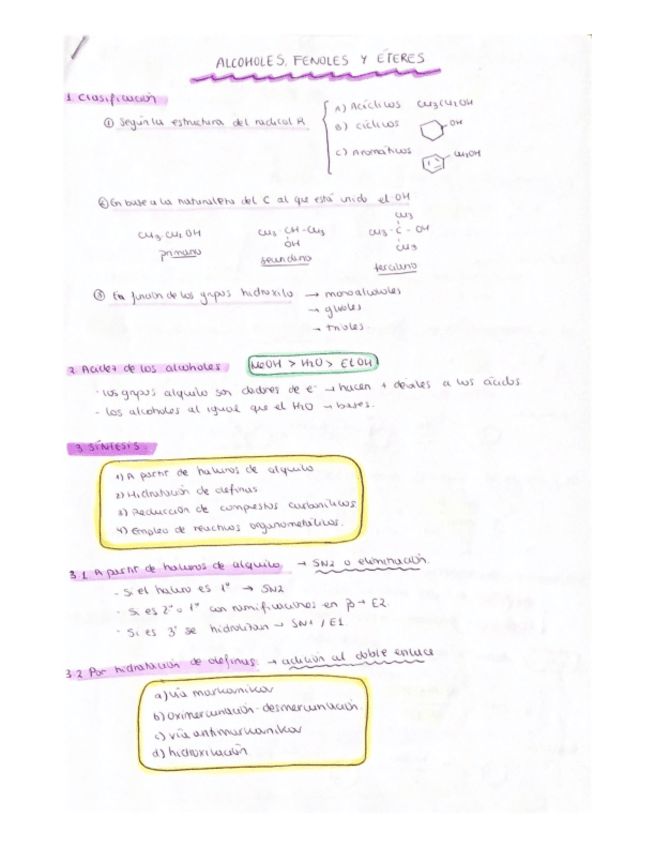 ALCOHOLES, FENOLES Y ÉTERES
1. Clasificación
① Según la estructura del radical R
A) Acíclicos CH3CH2OH
B) Cíclicos OH
C) Aromáticos CH2OH
② En base a la naturaleza del C al que está unido el OH
CH3-CH2OH
primario
CH3-CH-CH3
OH
secundario
CH3
CH3-C-OH
CH3
terciario
③ En función de los grupos hidroxilo → monoalcoholes
→ glicoles
→ trioles
2. Acidez de los alcoholes MeOH > H2O > EtOH
- Los grupos alquilo son dadores de e⁻ → hacen + débiles a los ácidos.
- Los alcoholes al igual que el H2O → bases.
3. SÍNTESIS
1) A partir de haluros de alquilo
2) Hidratación de olefinas
3) Reducción de compuestos carbonílicos
4) Empleo de reactivos organometálicos.
3.1. A partir de haluros de alquilo → SN2 o eliminación.
- Si el haluro es 1º → SN2
- Si es 2º o 1º con ramificaciones en β → E2.
- Si es 3º se hidrolizan → SN1 / E1
3.2. Por hidratación de olefinas → adición al doble enlace
a) vía markovnikov
b) oximercuriación-desmercuriación.
c) vía antimarkovnikov
d) hidroxilación